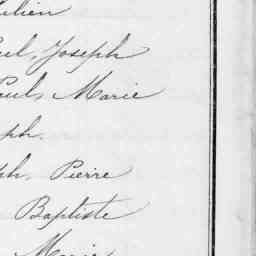 ulien
ul, Joseph
aul, Marie
ph.
ph, Pierre
Baptiste
Marie